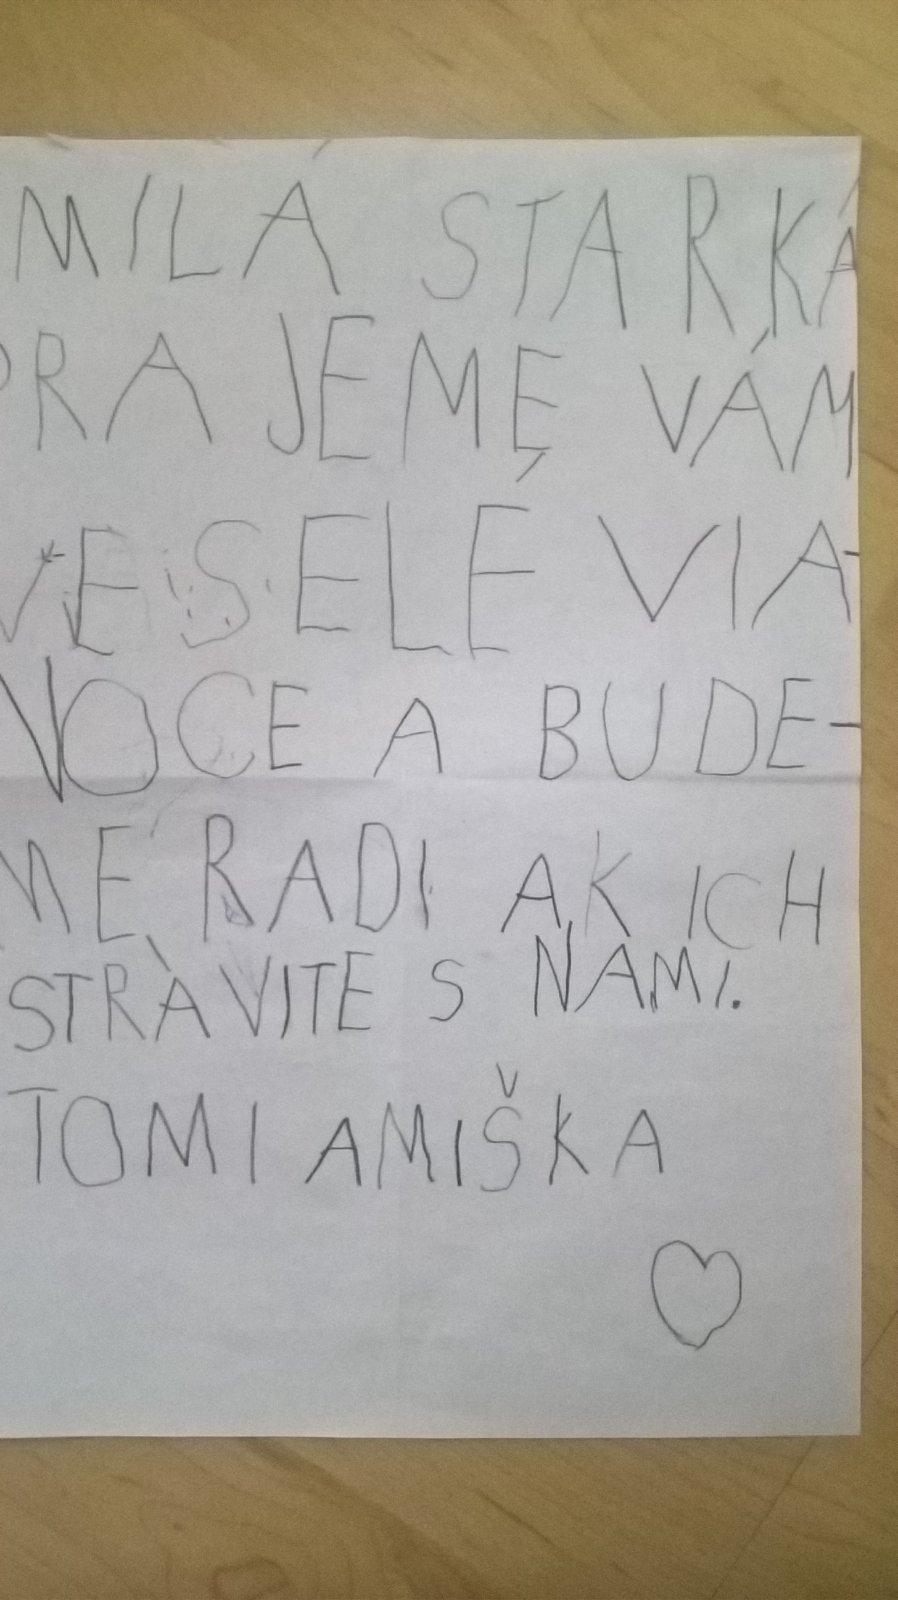 MILÁ STARKÁ
PRAJEME VÁM
VESELÉ VIA-
NOCE A BUDE-
ME RADI AK ICH
STRÁVITE S NAMI.
TOMI A MIŠKA